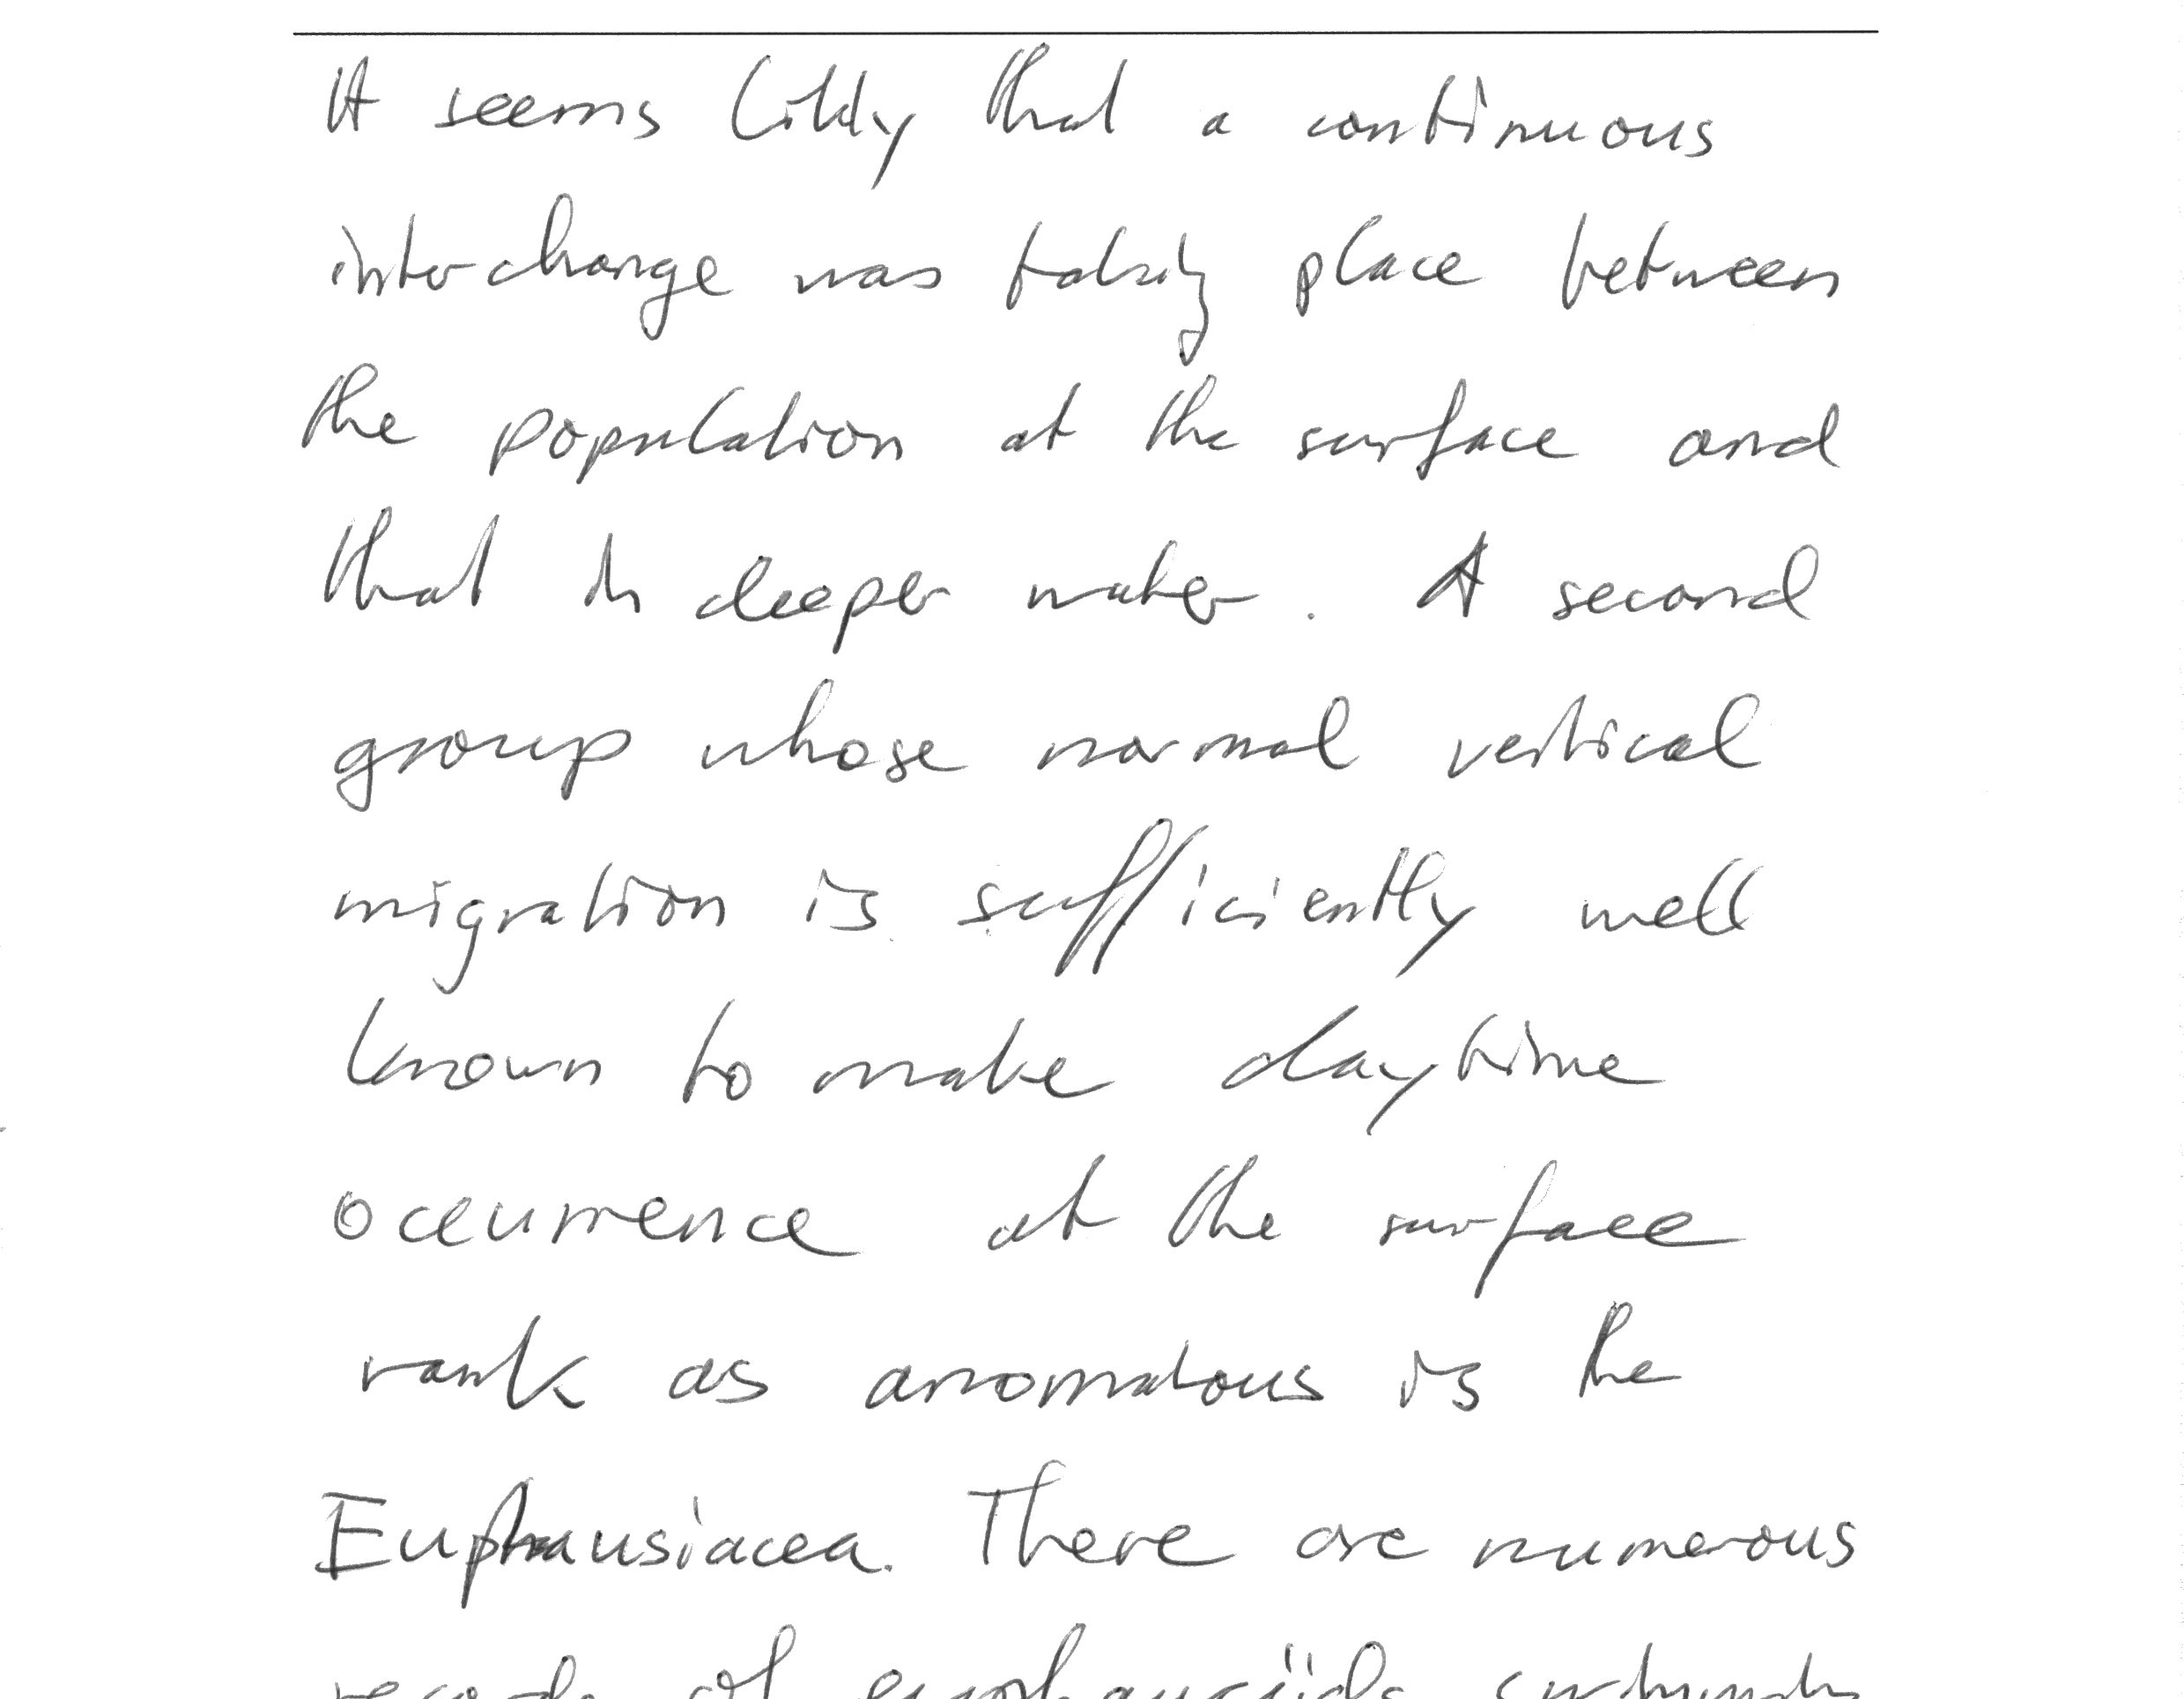 It seems likely that a continuous
interchange was taking place between
the population at the surface and
that in deeper water. A second
group whose normal vertical
migration is sufficiently well
known to make daytime
occurrence at the surface
rank as anomalous is the
Euphausiacea. There are numerous
records of euphausiids